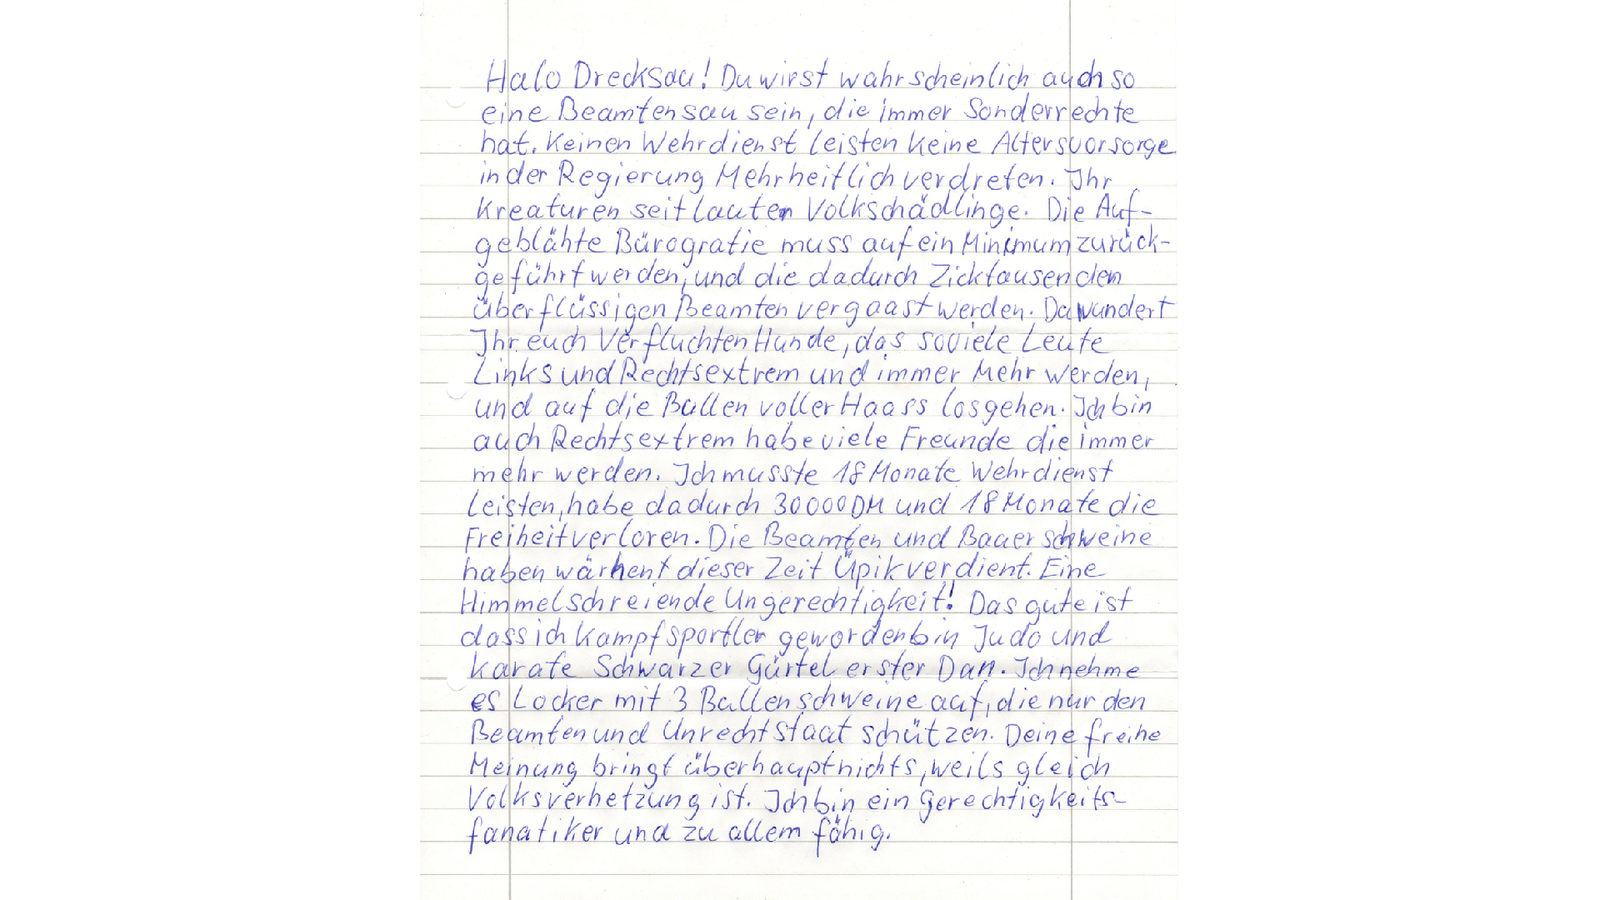 Halo Drecksau! Du wirst wahrscheinlich auch so
eine Beamtensau sein, die immer Sonderrechte
hat. Keinen Wehrdienst leisten keine Altersvorsorge
in der Regierung Mehrheitlich verdreten. Ihr
Kreaturen seit lauter Volkschädlinge. Die Auf-
geblähte Bürogratie muss auf ein Minimum zurück-
geführt werden, und die dadurch Zicktausenden
überflüssigen Beamten vergaast werden. Da wundert
Ihr euch Verfluchten Hunde, das soviele Leute
Links und Rechtsextrem und immer Mehr werden,
und auf die Bullen voller Haass losgehen. Ich bin
auch Rechtsextrem habe viele Freunde die immer
mehr werden. Ich musste 18 Monate Wehrdienst
Leisten, habe dadurch 30000 DM und 18 Monate die
Freiheit verloren. Die Beamten und Bauerschweine
haben wärhent dieser Zeit Üpik verdient. Eine
Himmelschreiende Ungerechtigkeit! Das gute ist
dass ich Kampfsportler geworden bin Judo und
Karate Schwarzer Gürtel erster Dan. Ich nehme
es Locker mit 3 Bullenschweine auf, die nur den
Beamten und Unrechtstaat schützen. Deine freihe
Meinung bringt überhaupt nichts, weils gleich
Volksverhetzung ist. Ich bin ein Gerechtigkeits-
fanatiker und zu allem fähig.